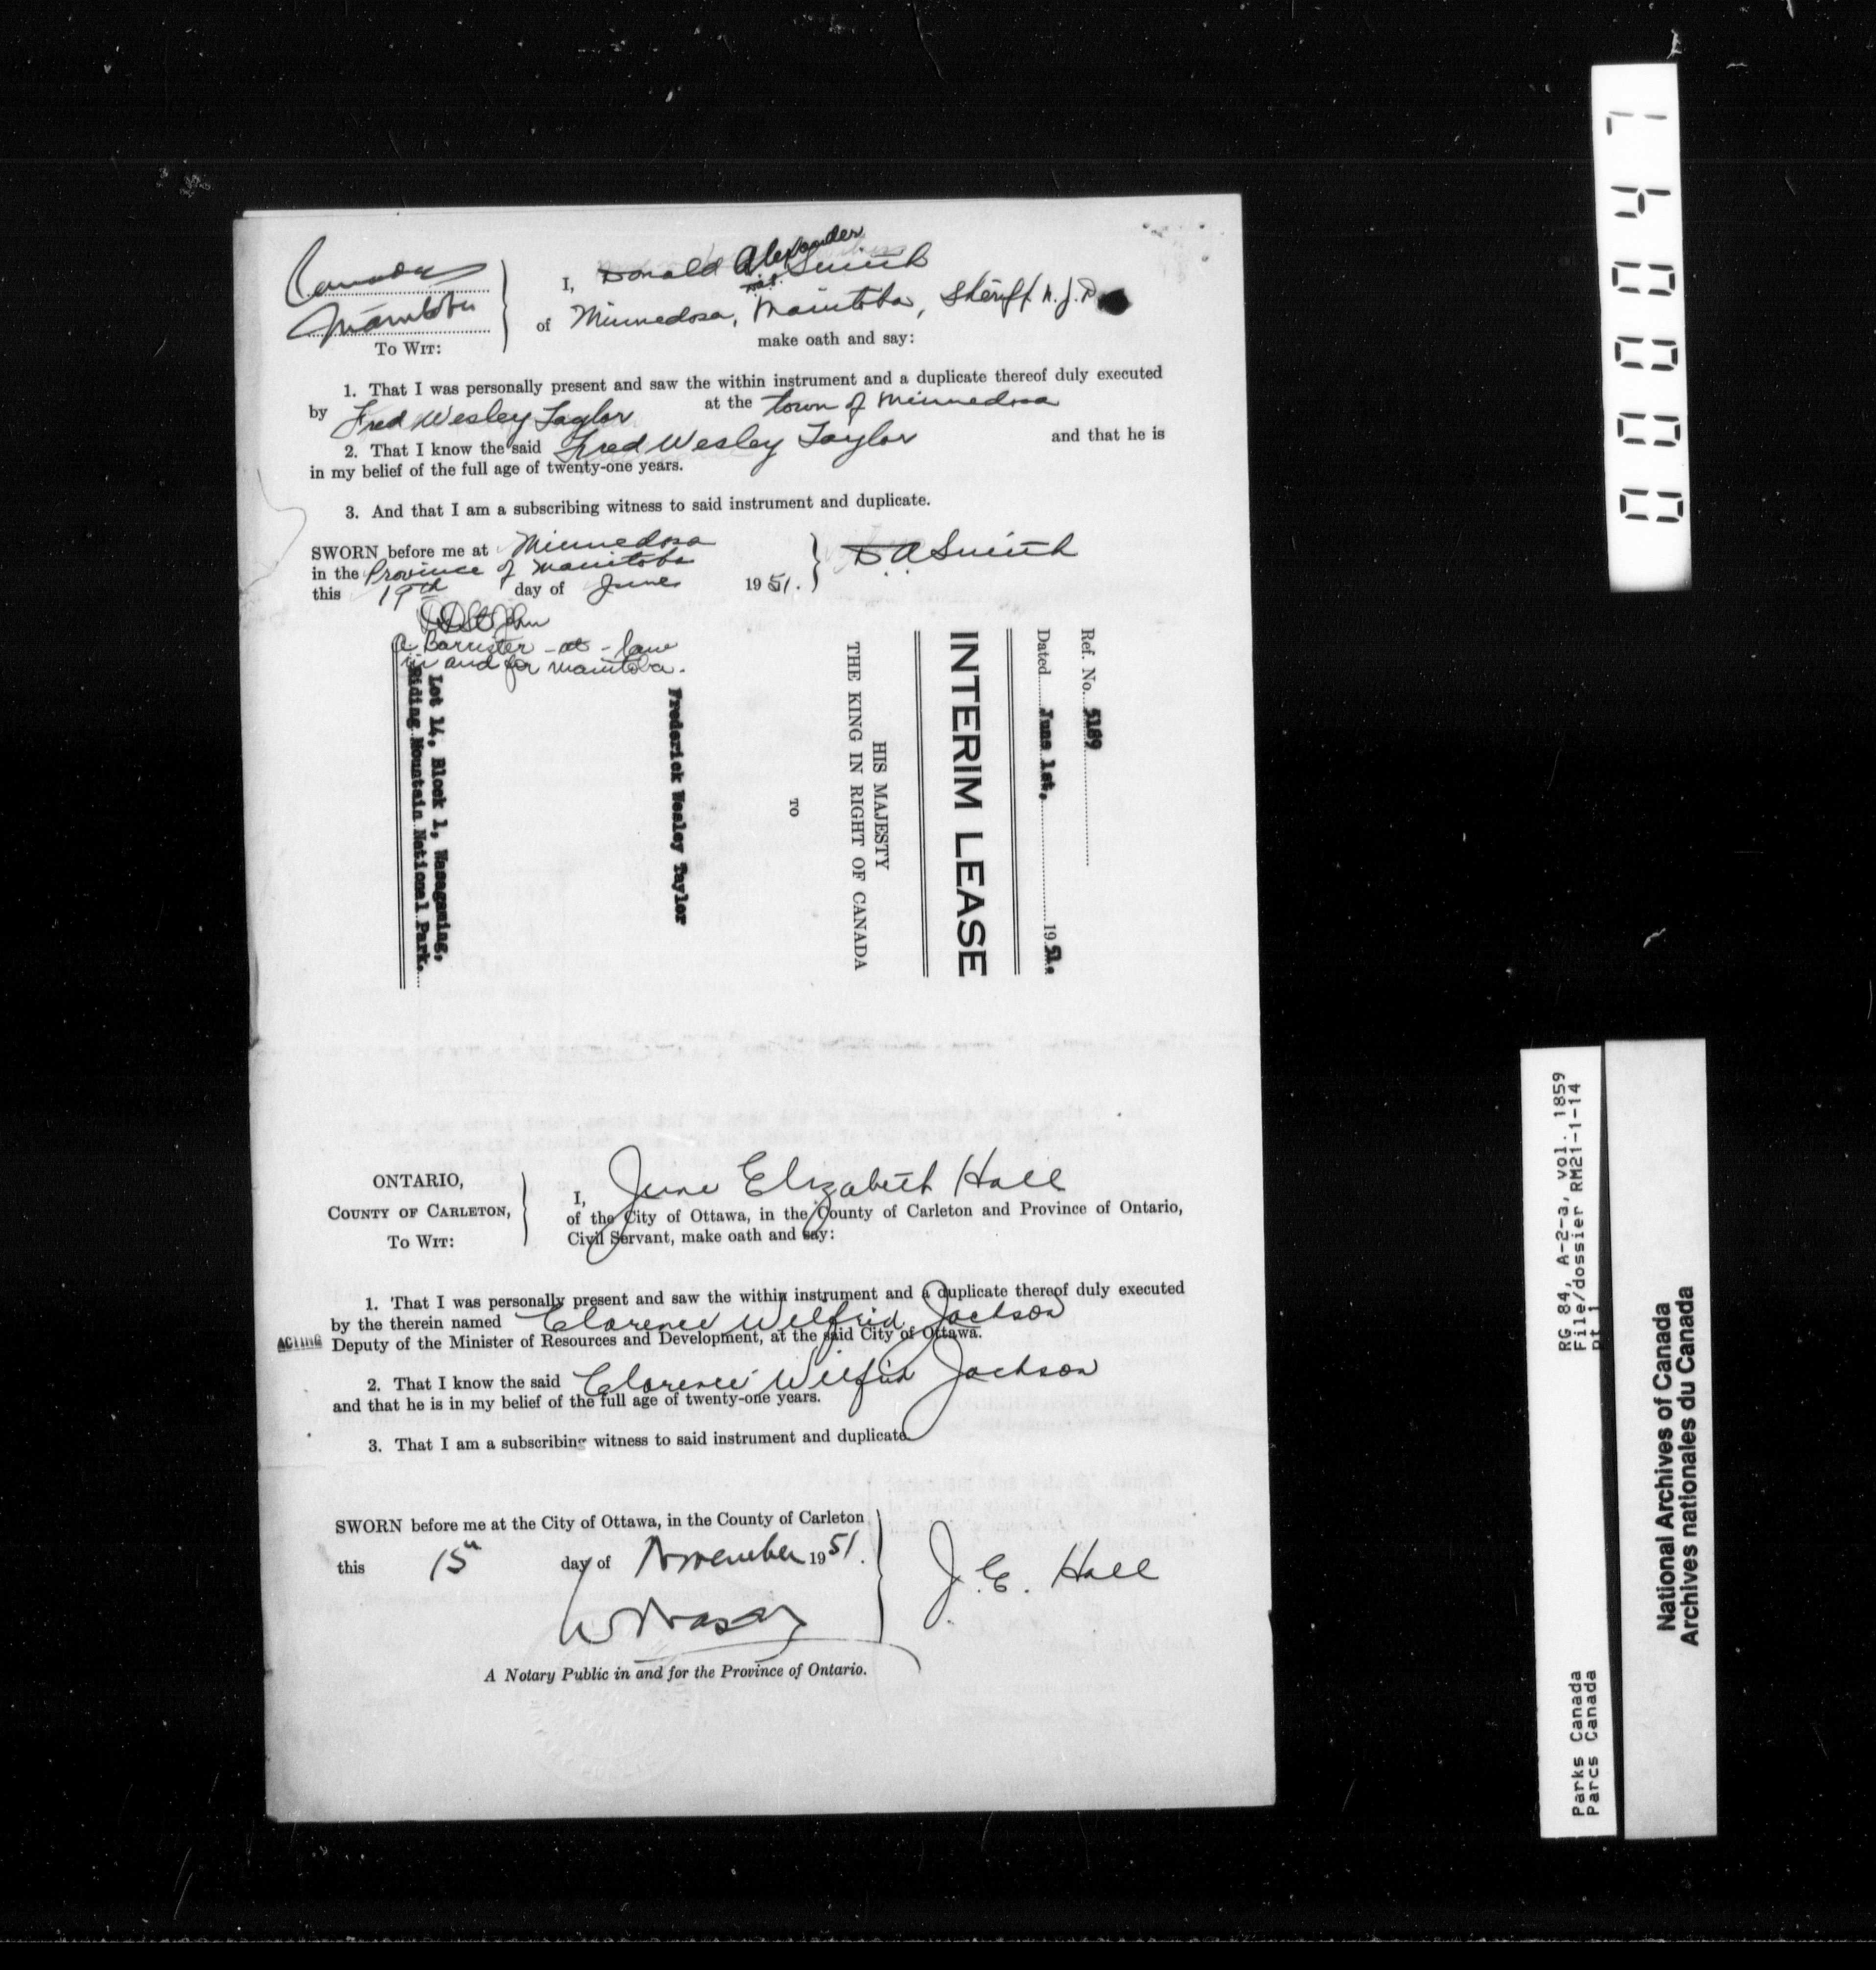 Canada
Manitoba
To Wit:
I, Donald Alexander Smith
of Minnedosa, Manitoba, Sheriff N.J.D.
make oath and say:
1. That I was personally present and saw the within instrument and a duplicate thereof duly executed
by Fred Wesley Taylor at the town of Minnedosa
2. That I know the said Fred Wesley Taylor and that he is
in my belief of the full age of twenty-one years.
3. And that I am a subscribing witness to said instrument and duplicate.
SWORN before me at Minnedosa
in the Province of Manitoba
this 19th day of June 1951.
D A Smith
A Barrister-at-law
in and for Manitoba.
Ref. No. 5189
Dated June 1st, 1951.
INTERIM LEASE
HIS MAJESTY
THE KING IN RIGHT OF CANADA
TO
Frederick Wesley Taylor
Lot 14, Block 1, Wasagaming,
Riding Mountain National Park.
ONTARIO,
COUNTY OF CARLETON,
To Wit:
I, June Elizabeth Hall
of the City of Ottawa, in the County of Carleton and Province of Ontario,
Civil Servant, make oath and say:
1. That I was personally present and saw the within instrument and a duplicate thereof duly executed
by the therein named Clarence Wilfrid Jackson
ACTING Deputy of the Minister of Resources and Development, at the said City of Ottawa.
2. That I know the said Clarence Wilfrid Jackson
and that he is in my belief of the full age of twenty-one years.
3. That I am a subscribing witness to said instrument and duplicate.
SWORN before me at the City of Ottawa, in the County of Carleton
this 15th day of November 1951.
J. E. Hall
A Notary Public in and for the Province of Ontario.
000047
RG 84, A-2-a, vol. 1859
File/dossier RM21-1-14
pt 1
Parks Canada
Parcs Canada
National Archives of Canada
Archives nationales du Canada